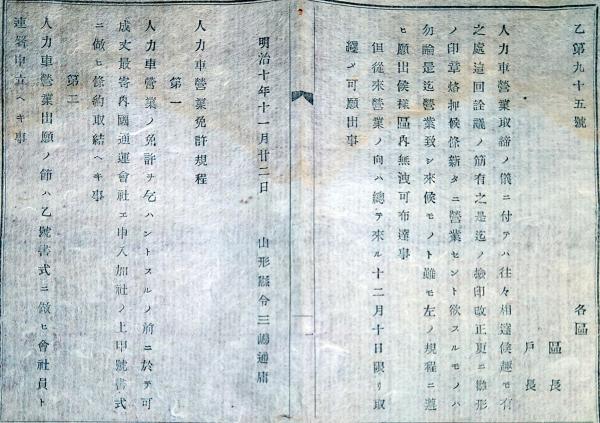 乙第九十五號
各區
區長
戸長
人力車營業取締ノ儀ニ付テハ往々相達候趣モ有
之處這回詮議ノ筋有之是迄ノ檢印改正更ニ雛形
ノ印章烙押候條新タニ營業セント欲スルモノハ
勿論是迄營業致シ來候モノト雖モ左ノ規程ニ遵
ヒ願出候樣區内無洩可布達事
但從來營業ノ向ハ總テ來ル十二月十日限リ取
纒メ可願出事
明治十年十一月廿二日
山形縣令三嶋通庸
人力車營業免許規程
第一
人力車營業ノ免許ヲ乞ハントスルノ前ニ於テ可
成丈最寄内國通運會社エ申入加社ノ上甲號書式
ニ倣ヒ條約取結ヘキ事
第二
人力車營業出願ノ節ハ乙號書式ニ倣ヒ會社員ト
連署申立ヘキ事